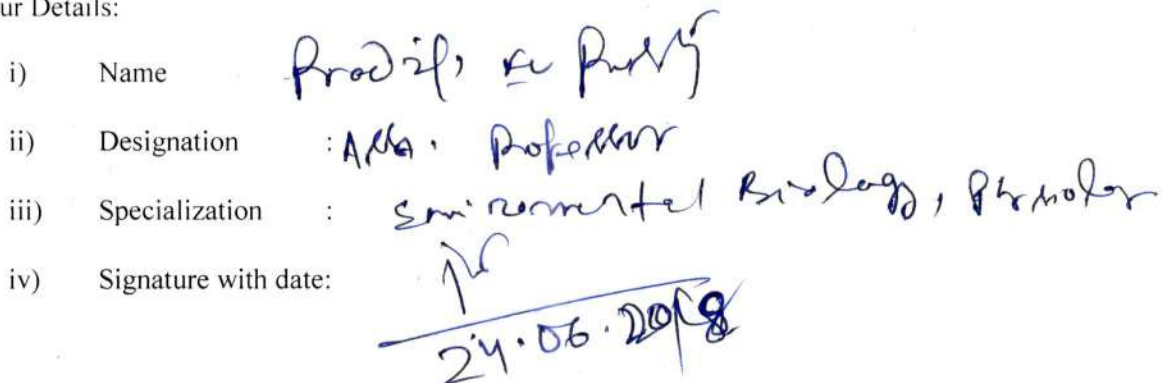 ur Details:
i) Name Pradip
ii) Designation : Professor
iii) Specialization : Environmental Biology,
iv) Signature with date:
24.06.2018